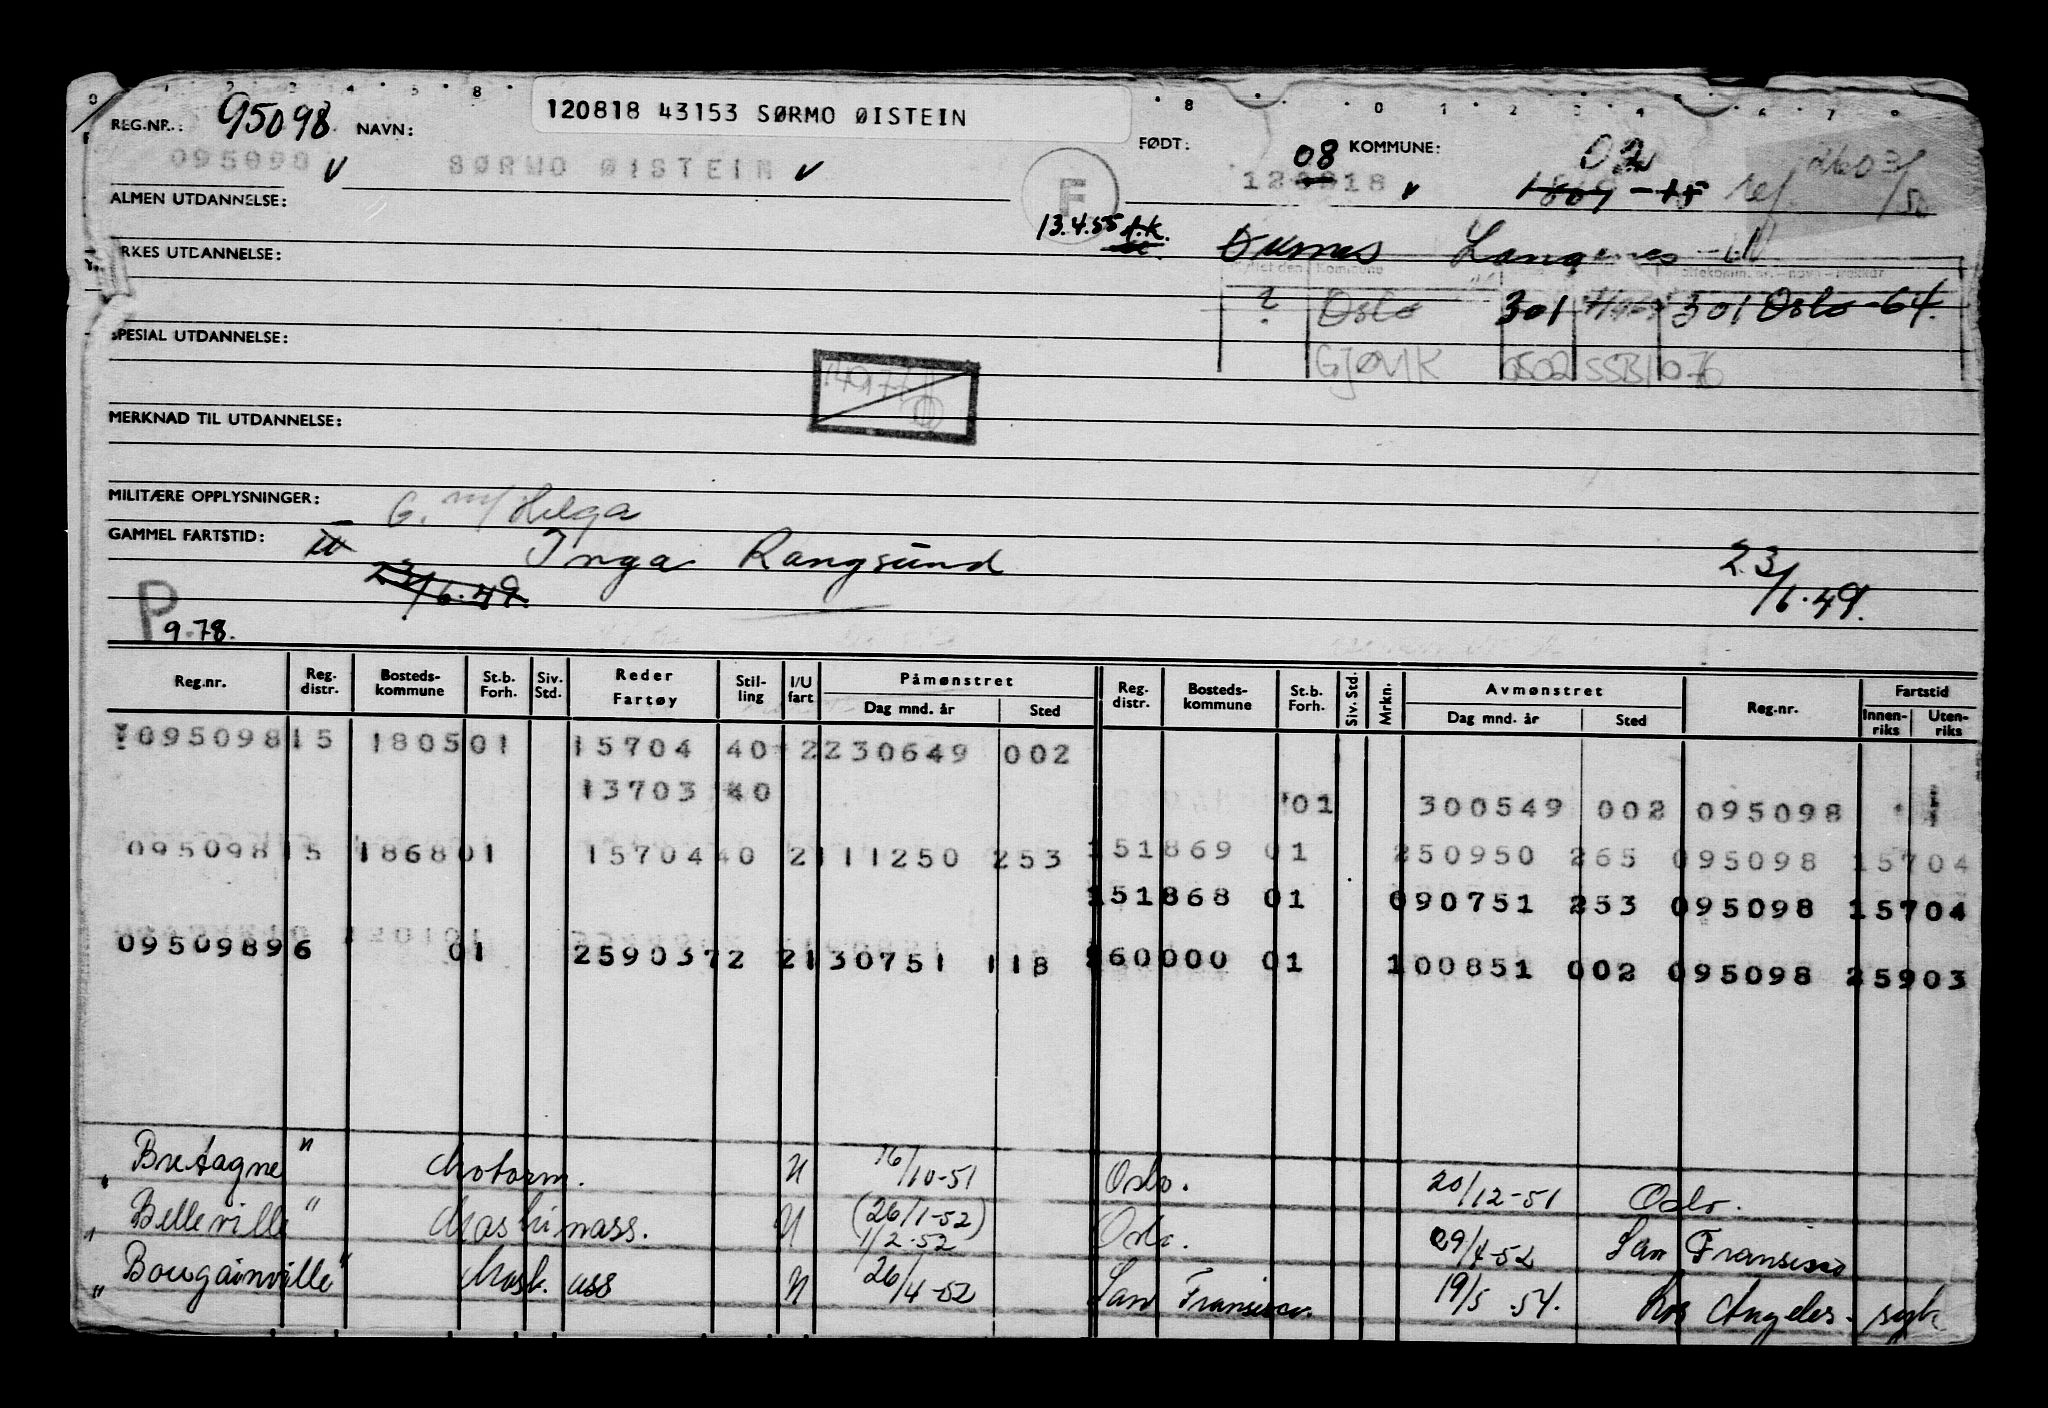 120818 43153 SØRMO ØISTEIN
REG.NR.: 95098 NAVN: FØDT: 08 KOMMUNE: 02
095090 V SØRMO ØISTEIN V 120818 V 1867 - 15 ref.
F
ALMEN UTDANNELSE:
13.4.55
YRKES UTDANNELSE: Langenes
? Oslo 301 301 Oslo - 64.
SPESIAL UTDANNELSE: GJØVIK 0502 SSB 076
MERKNAD TIL UTDANNELSE:
MILITÆRE OPPLYSNINGER: G. m/ Helga
GAMMEL FARTSTID: Inga Rangsund 23/6.49.
23/6.49.
P
9.78.
Reg.nr. Reg. distr. Bosteds-kommune St.b. Forh. Siv. Std. Reder Fartøy Stil-ling I/U fart Påmønstret Dag mnd. år Sted Reg. distr. Bosteds-kommune St.b. Forh. Siv. Std. Mrkn. Avmønstret Dag mnd. år Sted Reg.nr. Fartstid Innen-riks Uten-riks
095098 15 1805 01 15704 40 2 230649 002
13703 40 01 300549 002 095098
095098 15 1868 01 15704 40 2 111250 253 15 1869 01 250950 265 095098 15704
15 1868 01 090751 253 095098 15704
095098 96 01 25903 72 2 130751 118 96 0000 01 100851 002 095098 25903
" Bretagne " Motorm. U 16/10-51 Oslo. 20/12-51 Oslo.
" Belleville " Maskinass. U (26/1-52) Oslo. 29/4-52 San Fransisco
1/2-52
" Bougainville " Mask. ass U 26/4-52 San Fransisco. 19/5.54. Los Angeles - syk